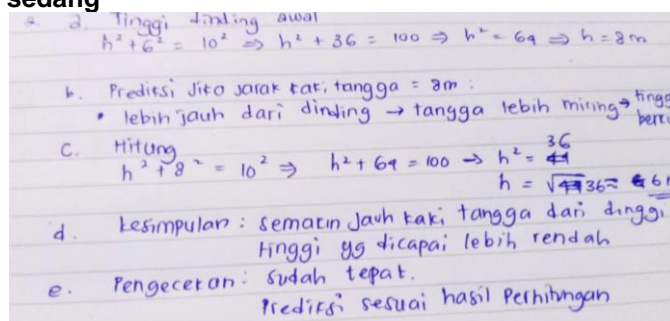 sedang
2. a. Tinggi dinding awal
h² + 6² = 10² ⇒ h² + 36 = 100 ⇒ h² = 64 ⇒ h = 8m
b. Prediksi Jika jarak kaki tangga = 8m :
• lebih jauh dari dinding → tangga lebih miring →
C. Hitung
h² + 8² = 10² ⇒ h² + 64 = 100 → h² = 36
h = √36 = 6
d. kesimpulan : semakin jauh kaki tangga dari dinggi
tinggi yg dicapai lebih rendah
e. Pengecekan : sudah tepat.
Prediksi sesuai hasil Perhitungan